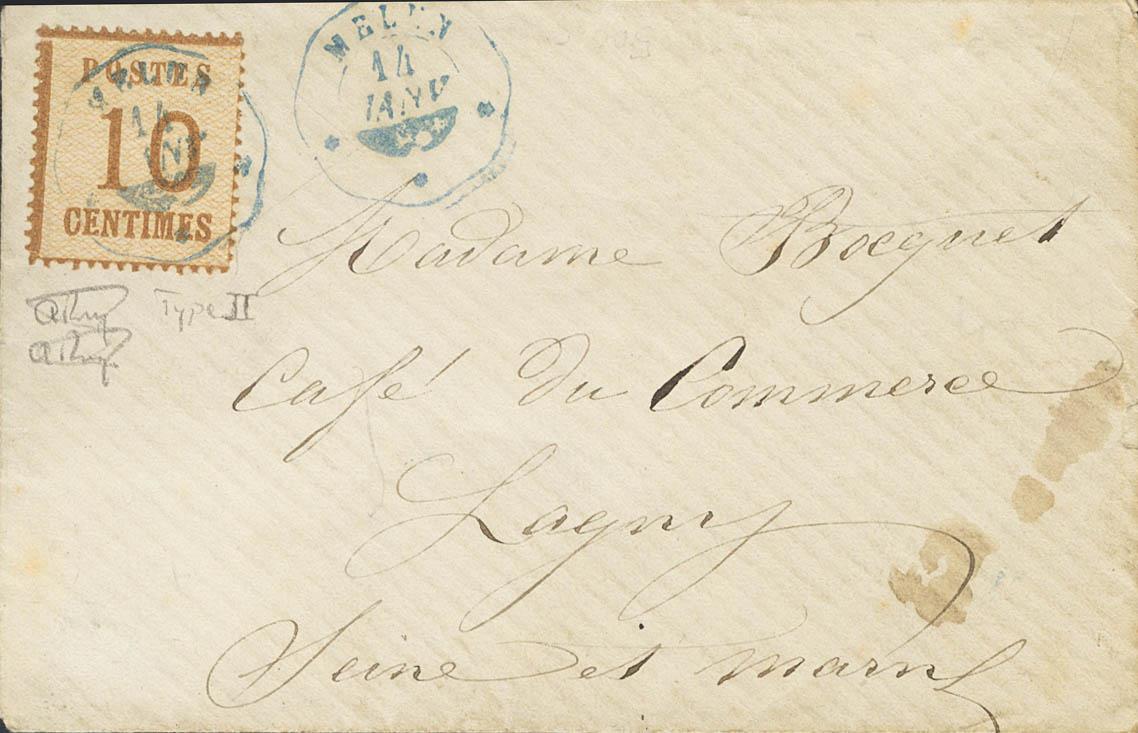 POSTES
10
CENTIMES
MELUN
14
JANV
Type II
Madame Bocquet
Café du Commerce
Lagny
Seine et marne